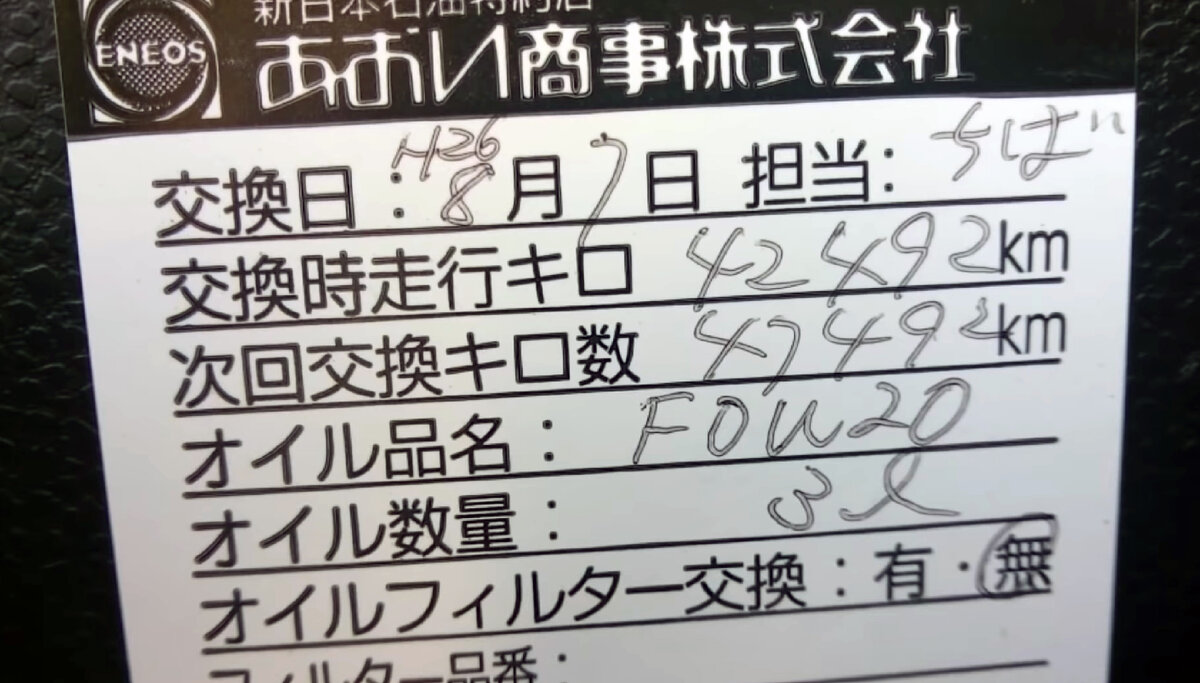 新日本石油特約店
ENEOS
あおい商事株式会社
交換日：H26 8月7日 担当：ちば
交換時走行キロ 42492km
次回交換キロ数 47492km
オイル品名： F0W20
オイル数量： 3ℓ
オイルフィルター交換：有・無
フィルター品番：